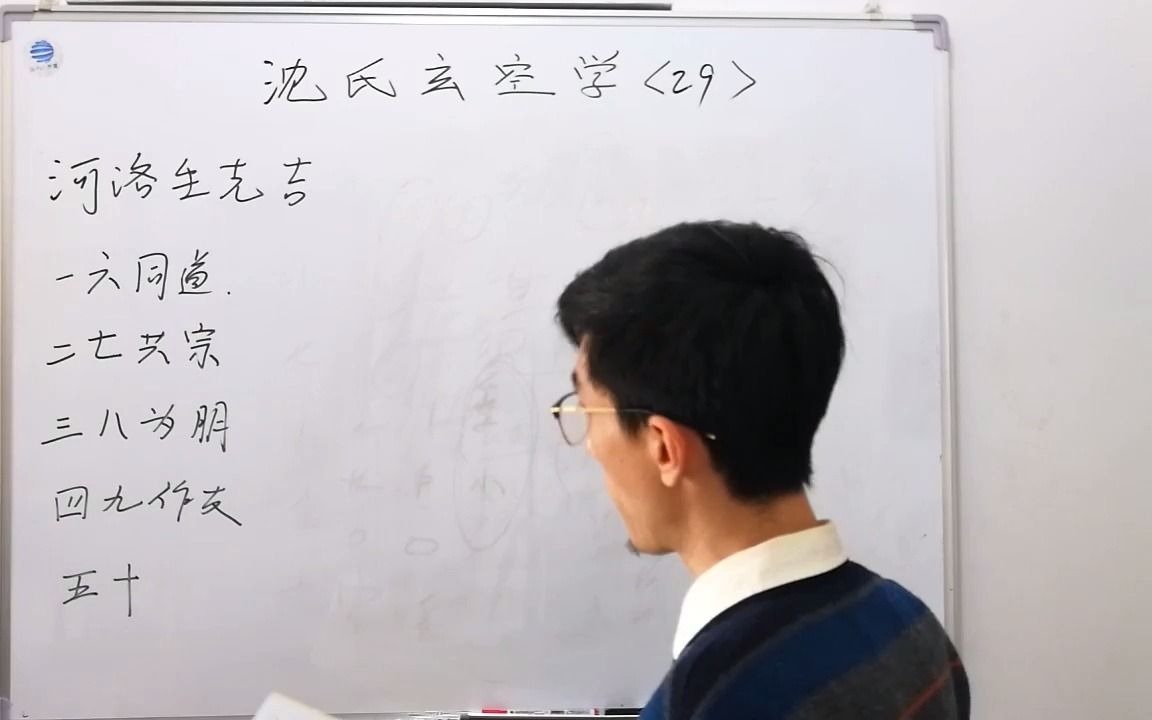 沈氏玄空学<29>
河洛生克吉
一六同道.
二七共宗
三八为朋
四九作友
五十